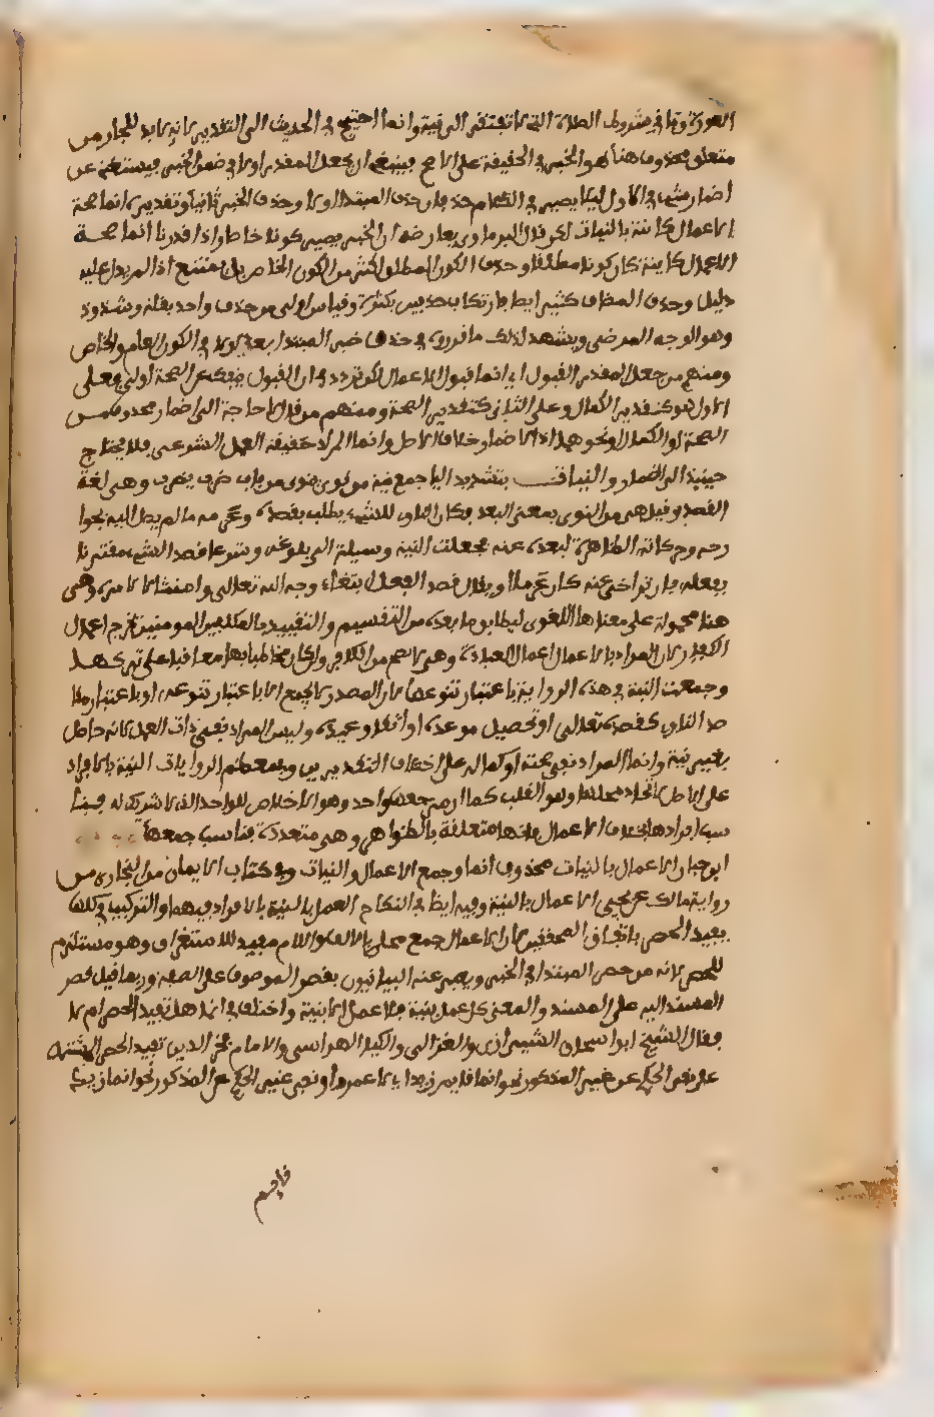 العورة وباقي شروط الصلاة التي لا تفتقر الى نية وانما احتيج في الحديث الى التقدير لانه لا بد للجار من
متعلق محذوف هنا هو الخبر في الحقيقة على الاصح فينبغي ان يجعل المقدر اولا في ضمن الخبر فيستغنى عن
اضمار شيء في الاول ليلا يصير في الكلام حذفان حذف المبتدا اولا وحذف الخبر ثانيا وتقديره انما صحة
الاعمال كاينة بالنيات لكن قال البرماوي يعارضه ان الخبر يصير كونا خاصا واذا قدرنا انما صحة
الاعمال كاينة كان كونا مطلقا وحذف الكون المطلق اكثر من الكون الخاص بل يمتنع اذا لم يدل عليه
دليل وحذف المضاف كثير ايضا فارتكاب حذفين بكثرة وقياس اولى من حذف واحد بقلة وشذوذ
وهو الوجه المرضي ويشهد لذلك ما قرروه في حذف خبر المبتدا بعد لولا في الكون العام والخاص
ومنهم من جعل المقدر القبول اي انما قبول الاعمال لكن تردد في ان القبول ينفك عن الصحة اولى فعلى
الاول هو كتقدير الكمال وعلى الثاني كتقدير الصحة ومنهم من قال لا حاجة الى اضمار محذوف من
الصحة او الكمال او نحوهما اذ الاضمار خلاف الاصل وانما المراد حقيقة العمل الشرعي فلا يحتاج
حينيذ الى اضمار والنيات بتشديد اليا جمع نية من نوى ينوي من باب ضرب يضرب وهي لغة
القصد وقيل هي من النوى بمعنى البعد فكان الناوي للشيء يطلب بقصده وعزمه ما لم يصل اليه بجوا
رحه وحركاته الظاهرة لبعده عنه فجعلت النية وسيلة الى بلوغه وشرعا قصد الشيء مقترنا
بفعله فان تراخى عنه كان عزما او يقال قصد الفعل ابتغاء وجه الله تعالى وامتثالا لامره وهي
هنا محمولة على معناها اللغوي ليطابق ما بعده من التقسيم والتقييد بالمكلفين المومنين يخرج اعمال
الكفار لان المراد بالاعمال اعمال العبادة وهي لا تصح من الكافر وان كان مخاطبا بها معاقبا على تركها
وجمعت النية في هذه الرواية باعتبار تنوعها لان المصدر لا يجمع الا باعتبار تنوعه او باعتبار مقا
صد الناوي كقصده تعالى او تحصيل موعده او اتقاء وعيده وليس المراد نفي ذات العمل لانه حاصل
بغير نية وانما المراد نفي صحته او كماله على اختلاف التقديرين وفي معظم الروايات النية بالافراد
على الاصل لاتحاد محلها وهو القلب كما ان مرجعها واحد وهو الاخلاص للواحد الذي لا شريك له فنا
سب افرادها بخلاف الاعمال فانها متعلقة بالظواهر وهي متعددة فناسب جمعها
ابن حبان الاعمال بالنيات محذوف انما وجمع الاعمال والنيات وفي كتاب الايمان من البخاري من
رواية مالك عن يحيى الاعمال بالنية وفيه ايضا في النكاح العمل بالنية بالافراد فيهما والتركيب في كلها
يفيد الحصر باتفاق المحققين لان الاعمال جمع محلى بالالف واللام مفيد للاستغراق وهو مستلزم
للحصر لانه من حصر المبتدا في الخبر ويعبر عنه البيانيون بقصر الموصوف على الصفة وربما قيل قصر
المسند اليه على المسند والمعنى كل عمل بنية فلا عمل الا بنية واختلف في انما هل تفيد الحصر ام لا
فقال الشيخ ابو اسحاق الشيرازي والغزالي والكيا الهراسي والامام فخر الدين تفيد الحصر المشتمل
على نفي الحكم عن غير المذكور نحو انما قايم زيد اي لا عمرو او نفي غير الحكم عن المذكور نحو انما زيد
قايم